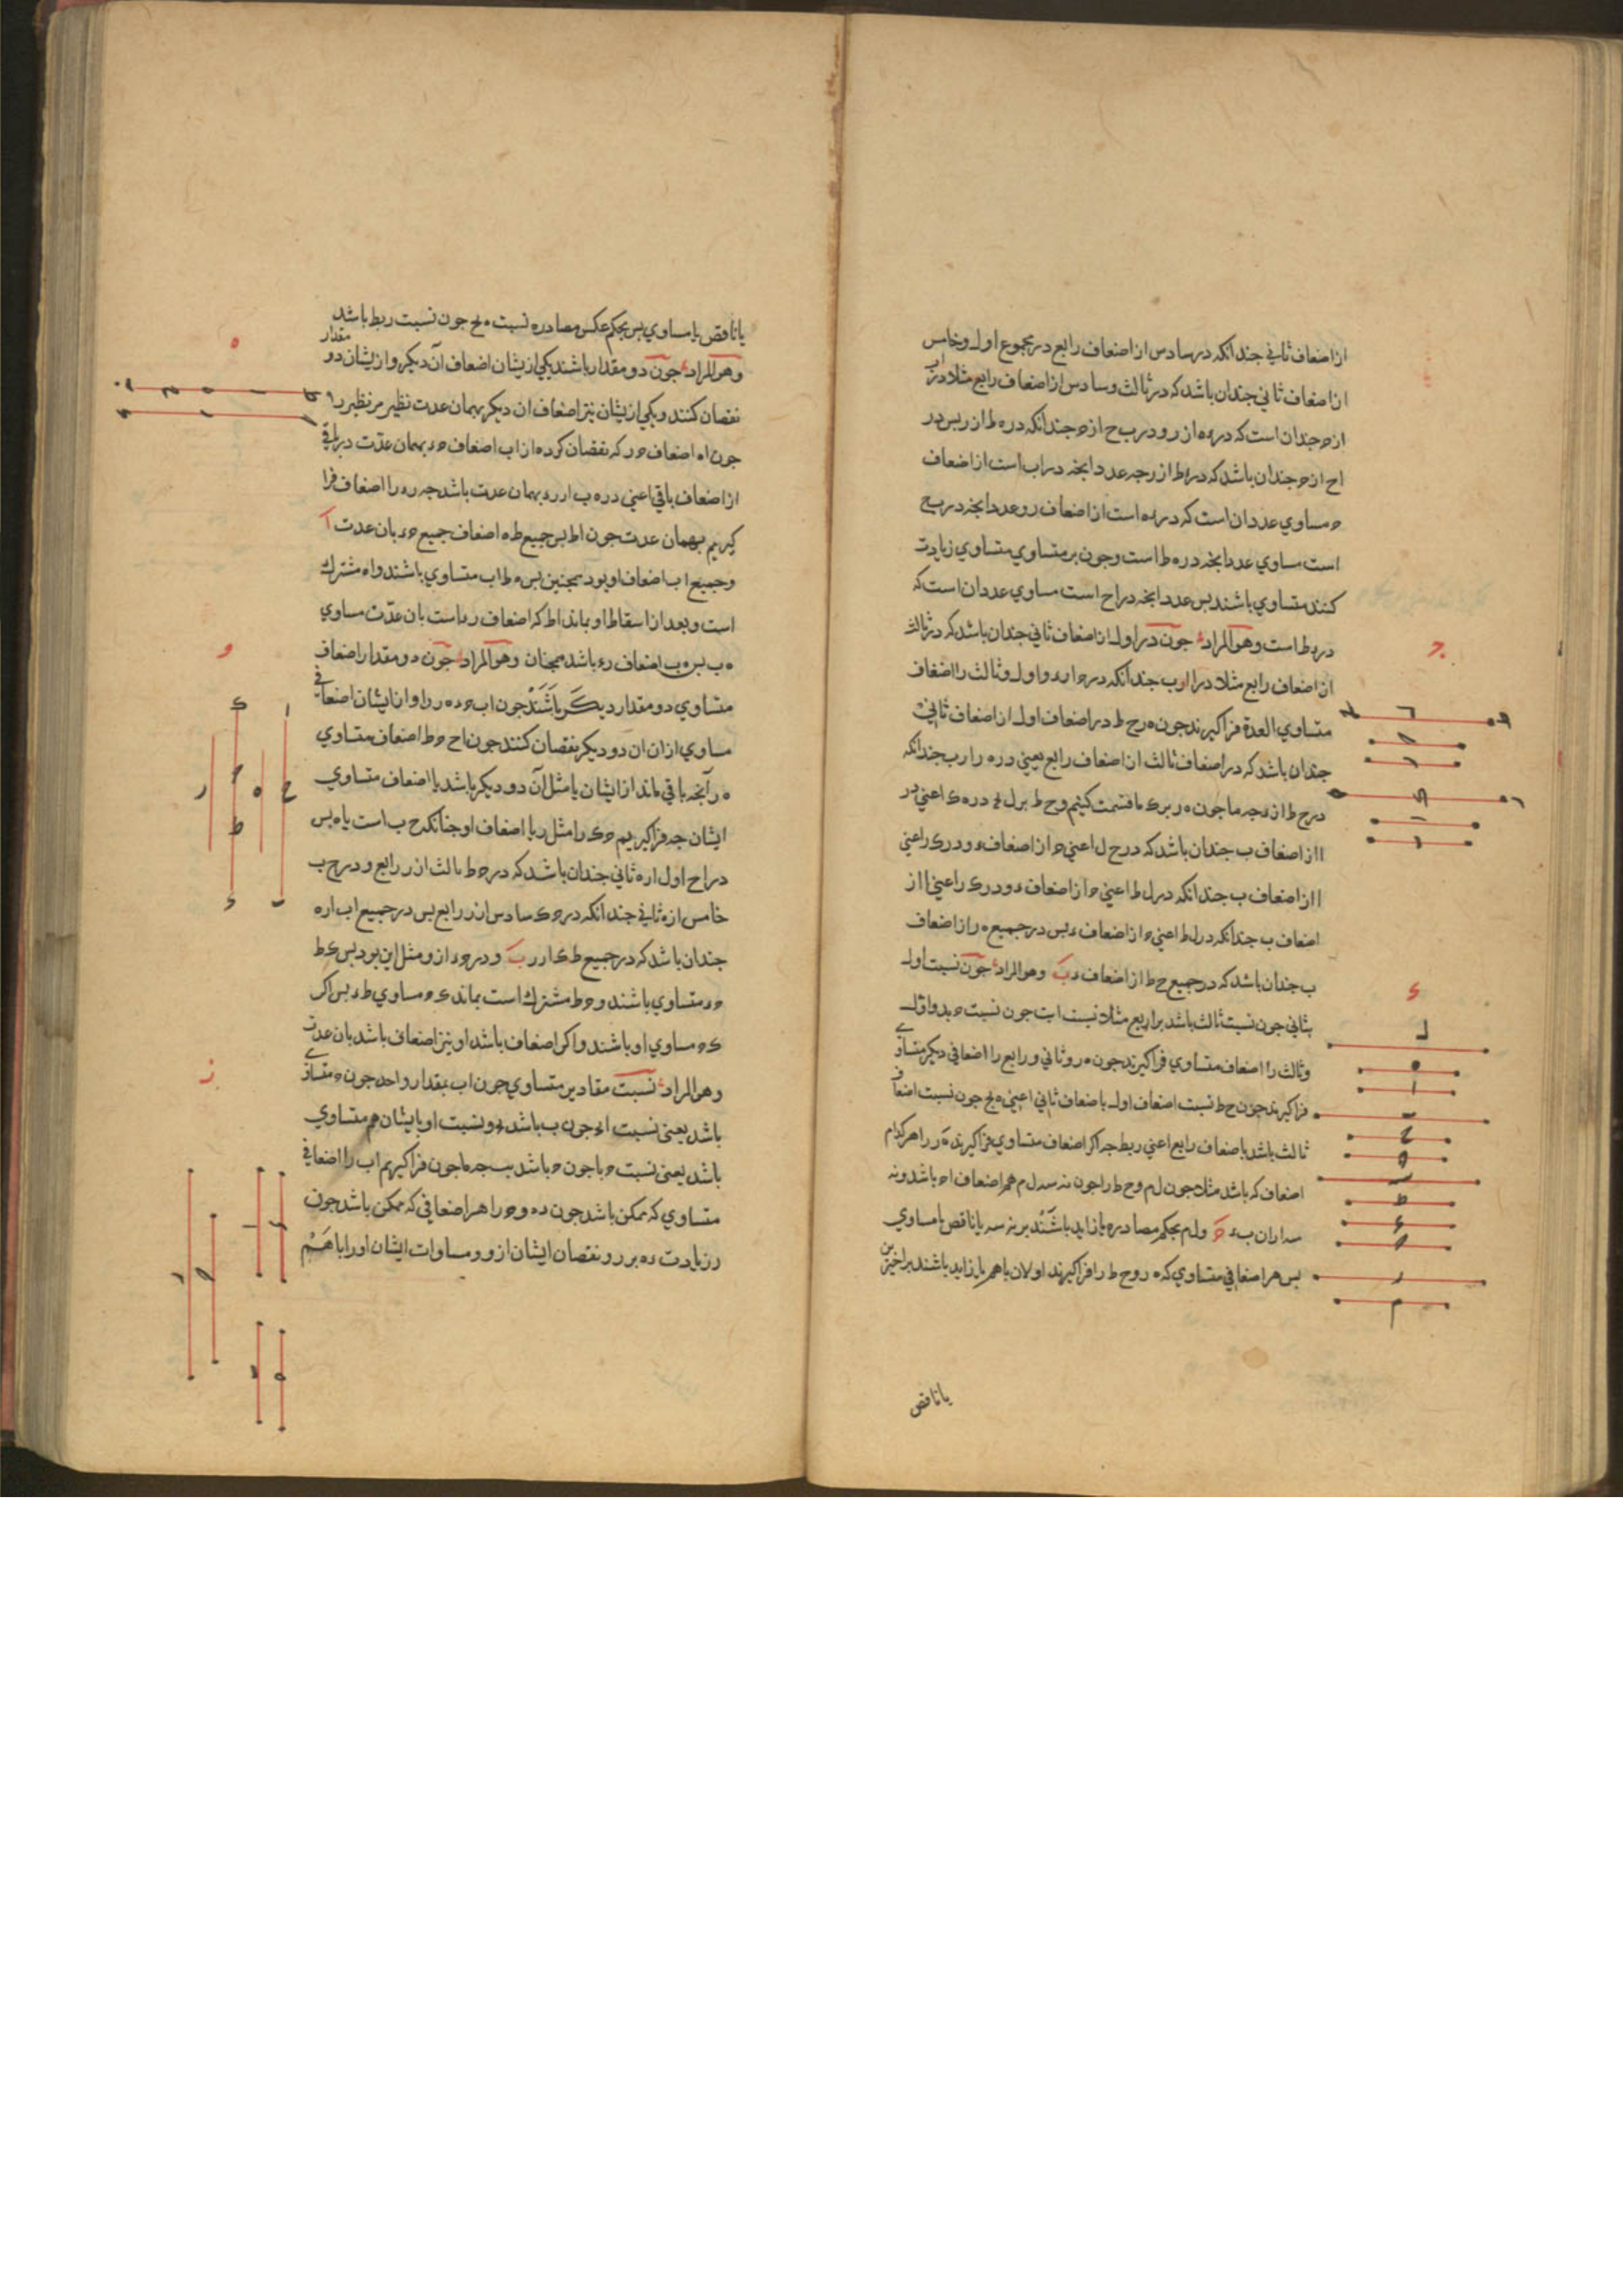 از اضعاف ثاني جندانكه در سادس از اضعاف رابع در مجموع اول وخامس
از اضعاف ثاني جندان باشد كه در ثالث وسادس از اضعاف رابع مثلا در اب
از ح جندان است كه در ده از ر ودر ب ح از ح جندانكه در ه ط از ر بس در
اح از ح جندان باشد كه در د ط از ر جه عدد انجه در اب است از اضعاف
ح مساوي عدد ان است كه در ده است از اضعاف ر وعدد انجه در ب ح
است مساوي عدد انجه در ه ط است وجون بر متساوي متساوي زيادت
كنند متساوي باشند بس عدد انجه در اح است مساوي عدد ان است كه
در د ط است وهو المراد جون در اول از اضعاف ثاني جندان باشد كه در ثالث
از اضعاف رابع مثلا در ا از ب جندانكه در ح از د واول وثالث را اضعاف
متساوي العدة فرا كيرند جون ه ر ح ط در اضعاف اول از اضعاف ثاني
جندان باشد كه در اضعاف ثالث از اضعاف رابع يعني در ه ر از ب جندانكه
در ح ط از د جه ما جون ه ر بر ك قسمت كنيم وح ط بر ل در ه ك اعني در
ا از اضعاف ب جندان باشد كه در ح ل اعني ح از اضعاف د ودر ك ر اعني
ا از اضعاف ب جندانكه در ل ط اعني ح از اضعاف د ودر ك ر اعني ا از
اضعاف ب جندانكه در ل ط اعني ح از اضعاف د بس در جميع ه ر از اضعاف
ب جندان باشد كه در جميع ح ط از اضعاف د ب وهو المراد جون نسبت اول
بثاني جون نسبت ثالث باشد برابع مثلا نسبت ا ب جون نسبت ح بد واول
وثالث را اضعاف متساوي فرا كيرند جون ه ر وثاني ورابع را اضعافي ديكر متساوي
فرا كيرند جون ح ط نسبت اضعاف اول باضعاف ثاني اعني ه ح جون نسبت اضعاف
ثالث باشد باضعاف رابع اعني ر ط جه اكر اضعاف متساوي فرا كيرند ه ر را هر كدام
اضعاف كه باشد مثلا جون ل م وح ط را جون نه سه ل م هم اضعاف اح باشد ونه
سه از ان ب د ول م بحكم مصادره يا زايد باشند بر نه سه يا ناقص يا مساوي
بس هر اضعافي متساوي كه ه ر وح ط را فرا كيرند اولان با هم يا زايد باشند بر اخيرين
يا ناقص
يا ناقص يا مساوي بس بحكم عكس مصادره نسبت ه ح جون نسبت ر ط باشد
وهو المراد جون دو مقدار باشند يكي ازيشان اضعاف آن ديكر واز ايشان دو مقدار
نقصان كنند ويكي ازيشان نيز اضعاف ان ديكر بهمان عدت نظير مر نظير را
جون اه اضعاف ح ر كه نقصان كرده از اب اضعاف ح د بهمان عدت در باقي
از اضعاف باقي اعني در ه ب از ر د بهمان عدت باشد جه ر د را اضعاف فرا
كيريم بهمان عدت جون اط بس جميع ط ه اضعاف جميع ح د بان عدت ا
وجميع اب اضعاف او بود همجنين بس ه ط اب متساوي باشند واه مشترك
است وبعد از اسقاط او بماند اط كه اضعاف ر د است بان عدت مساوي
ه ب بس ه ب اضعاف ر د باشد همجنان وهو المراد جون دو مقدار اضعاف
متساوي دو مقدار ديكر باشند جون اب ح د ه ر را واز ايشان اضعافي
مساوي از ان ان دو ديكر نقصان كنند جون اح ح ط اضعاف متساوي
ه ر آنجه باقي ماند از ايشان يا مثل آن دو ديكر باشد يا اضعاف متساوي
ايشان جه فرا كيريم ح ك را مثل ر يا اضعاف او جنانكه ح ب است يا ه بس
در اح اول از ه ثاني جندان باشد كه در ح ط ثالث از ر رابع ودر ح ب
خامس از ه ثاني جندانكه در ح ك سادس از ر رابع بس در جميع اب از ه
جندان باشد كه در جميع ط ك از ر ب ودر ح د از و مثل اين بود بس ك ط
ح د متساوي باشند وح ط مشترك است بماند ك ح مساوي ط د بس اكر
ك ح مساوي او باشند واكر اضعاف باشد او نيز اضعاف باشد بان عدت
وهو المراد نسبت مقادير متساوي جون اب بمقدار واحد جون ح متساوي
باشد يعني نسبت ا بح جون ب باشد بح ونسبت او بايشان هم متساوي
باشد يعني نسبت ح با جون ح باشد بب جه ما جون فرا كيريم اب را اضعافي
متساوي كه ممكن باشد جون د ه وح را هر اضعافي كه ممكن باشد جون
ر زيادت د ه بر ر ونقصان ايشان از و ومساوات ايشان او را با هم